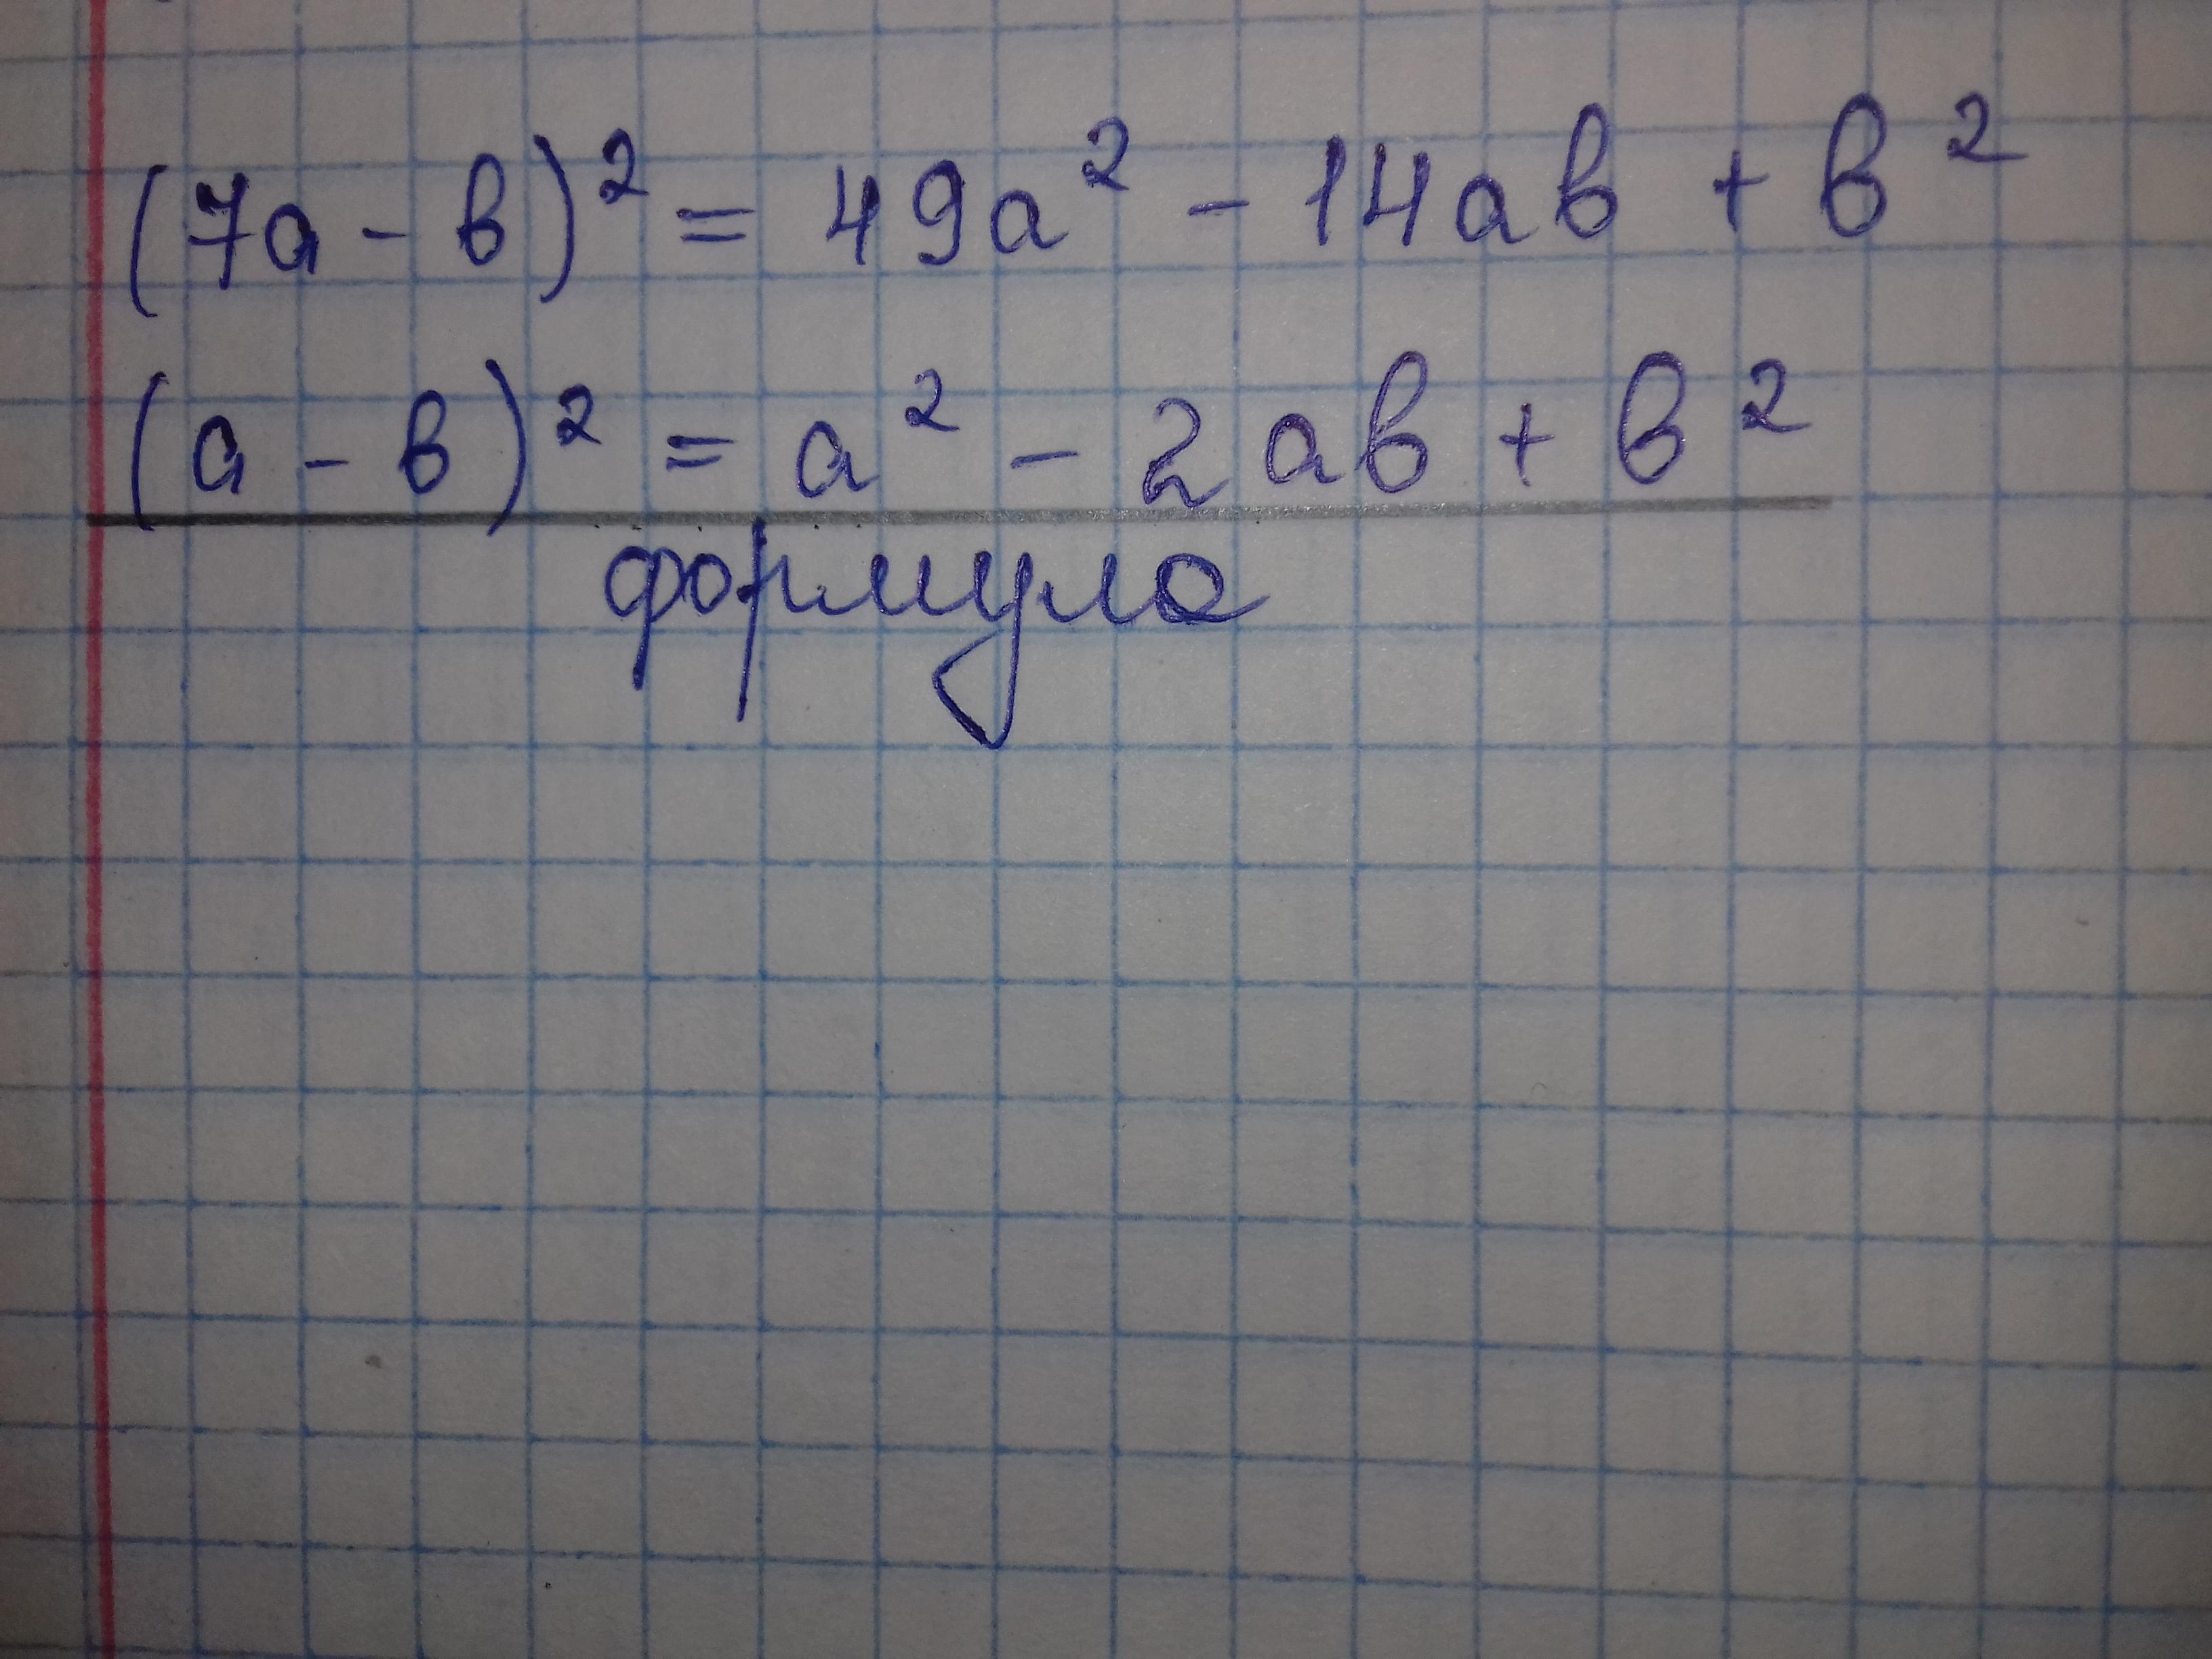 (7a - b)² = 49a² - 14ab + b²
(a - b)² = a² - 2ab + b²
формула